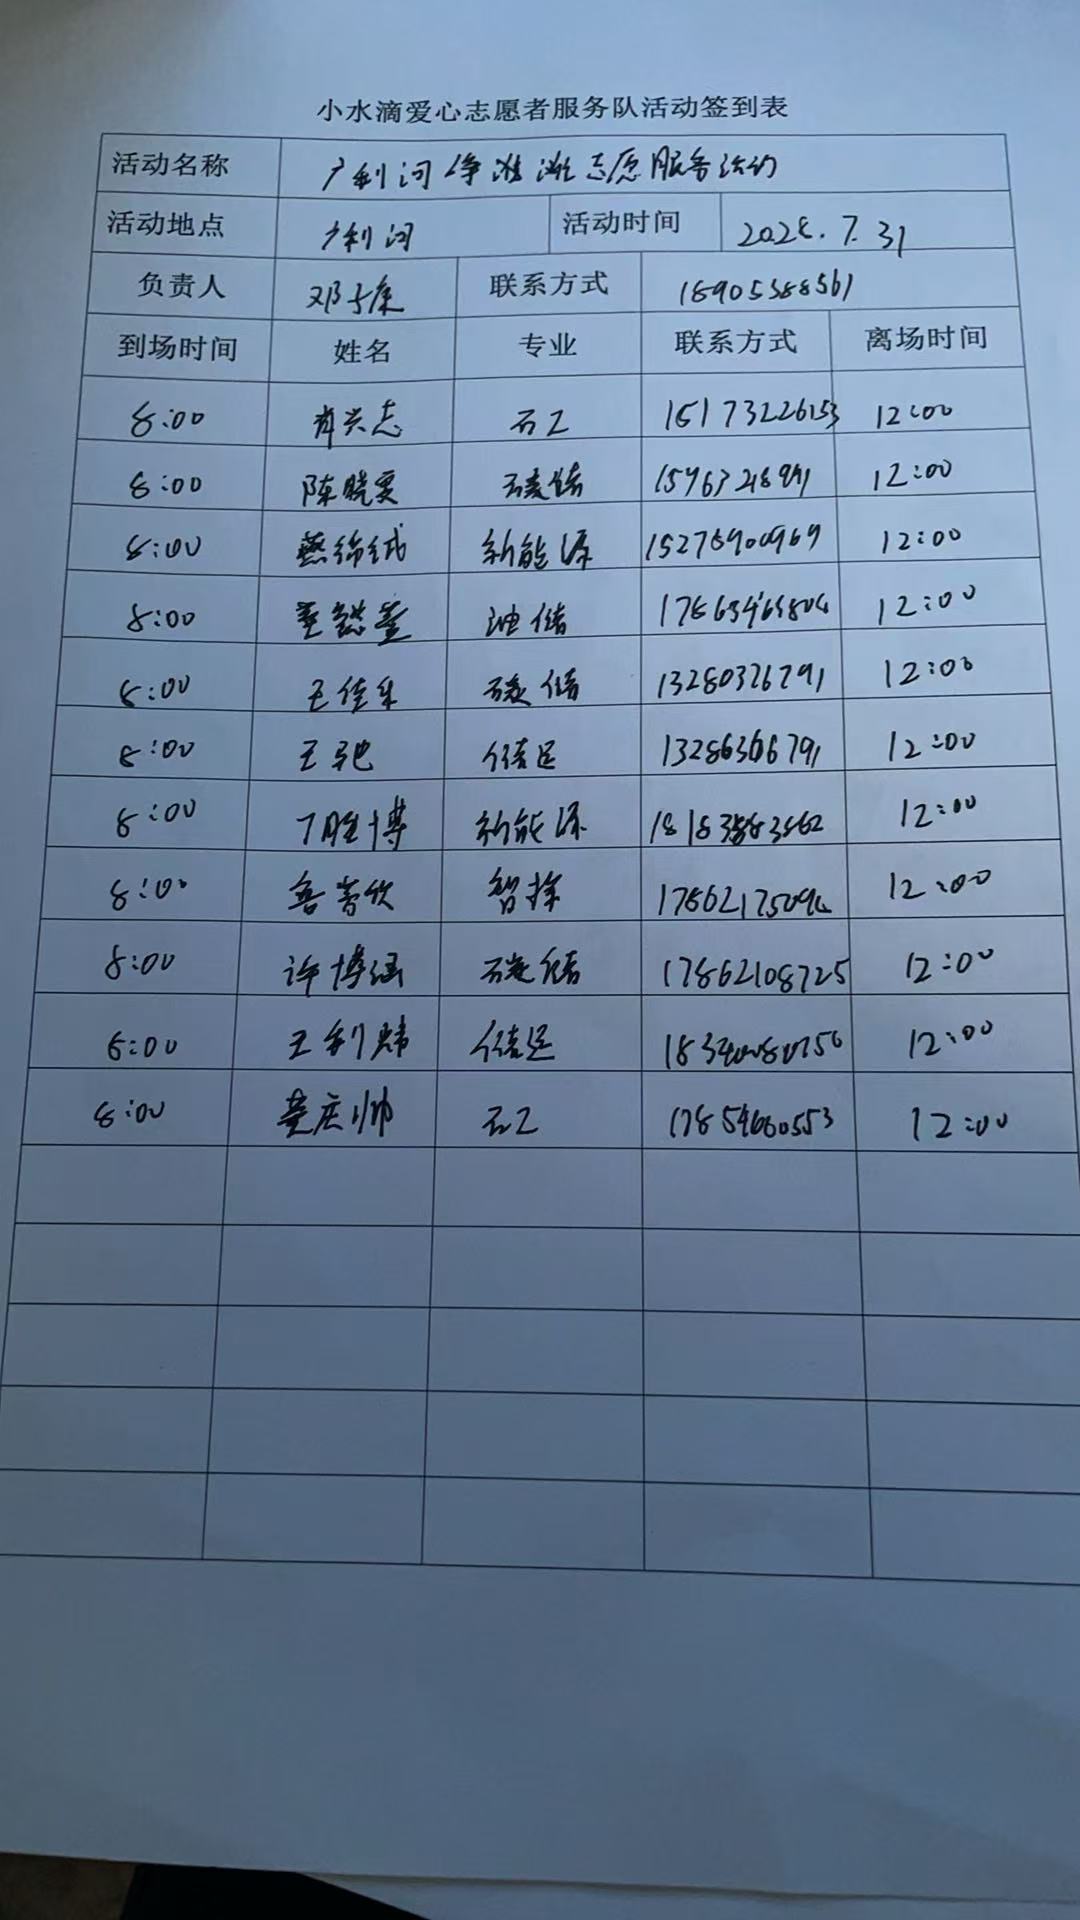 小水滴爱心志愿者服务队活动签到表
活动名称 广利河净滩志愿服务活动
活动地点 广利河 活动时间 7.31
负责人 邓 康 联系方式 18905388561
到场时间 姓名 专业 联系方式 离场时间
8:00 肖兴志 石工 15173226153 12:00
8:00 陈晓雯 碳储 12:00
8:00 新能源 15276900969 12:00
8:00 油储 12:00
8:00 王佳 碳储 13280326791 12:00
8:00 王驰 储运 13286366791 12:00
8:00 丁胜博 新能源 12:00
8:00 智探 12:00
8:00 许博涵 碳储 17862108725 12:00
8:00 王利炜 储运 12:00
8:00 庆帅 石工 17854660553 12:00